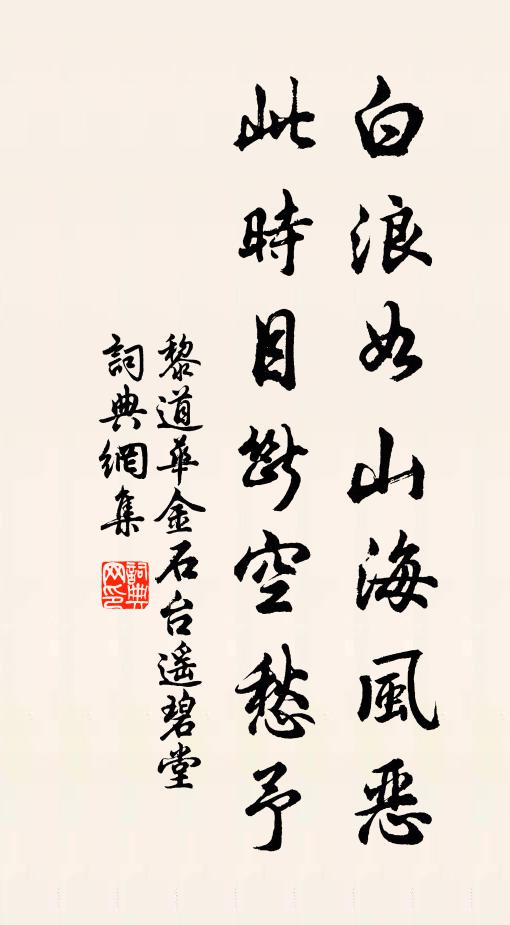 白浪如山海風惡
此時目斷空愁予
黎道華金石台遥碧堂
詞典網集
詞典
网印